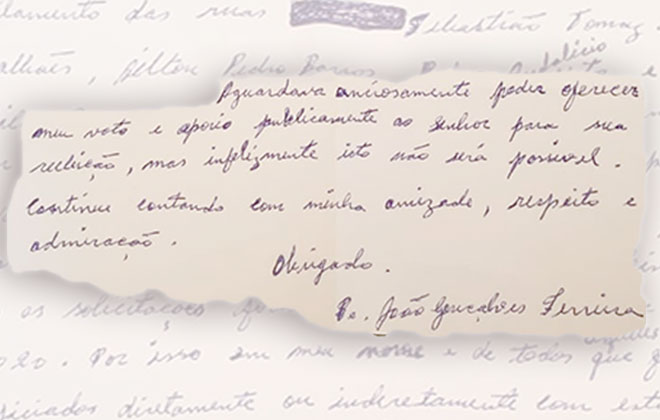 lamento das ruas Sebastião Tomaz
alhães, Nilton Pedro Barros, Pedro Adalício
Aguardava anciosamente poder oferecer
meu voto e apoio publicamente ao senhor para sua
reeleição, mas infelizmente isto não será possível.
Continue contando com minha amizade, respeito e
admiração.
Obrigado.
Pe. João Gonçalves Ferreira
as solicitações
Por isso em meu nome e de todos que
iciados diretamente ou indiretamente com est